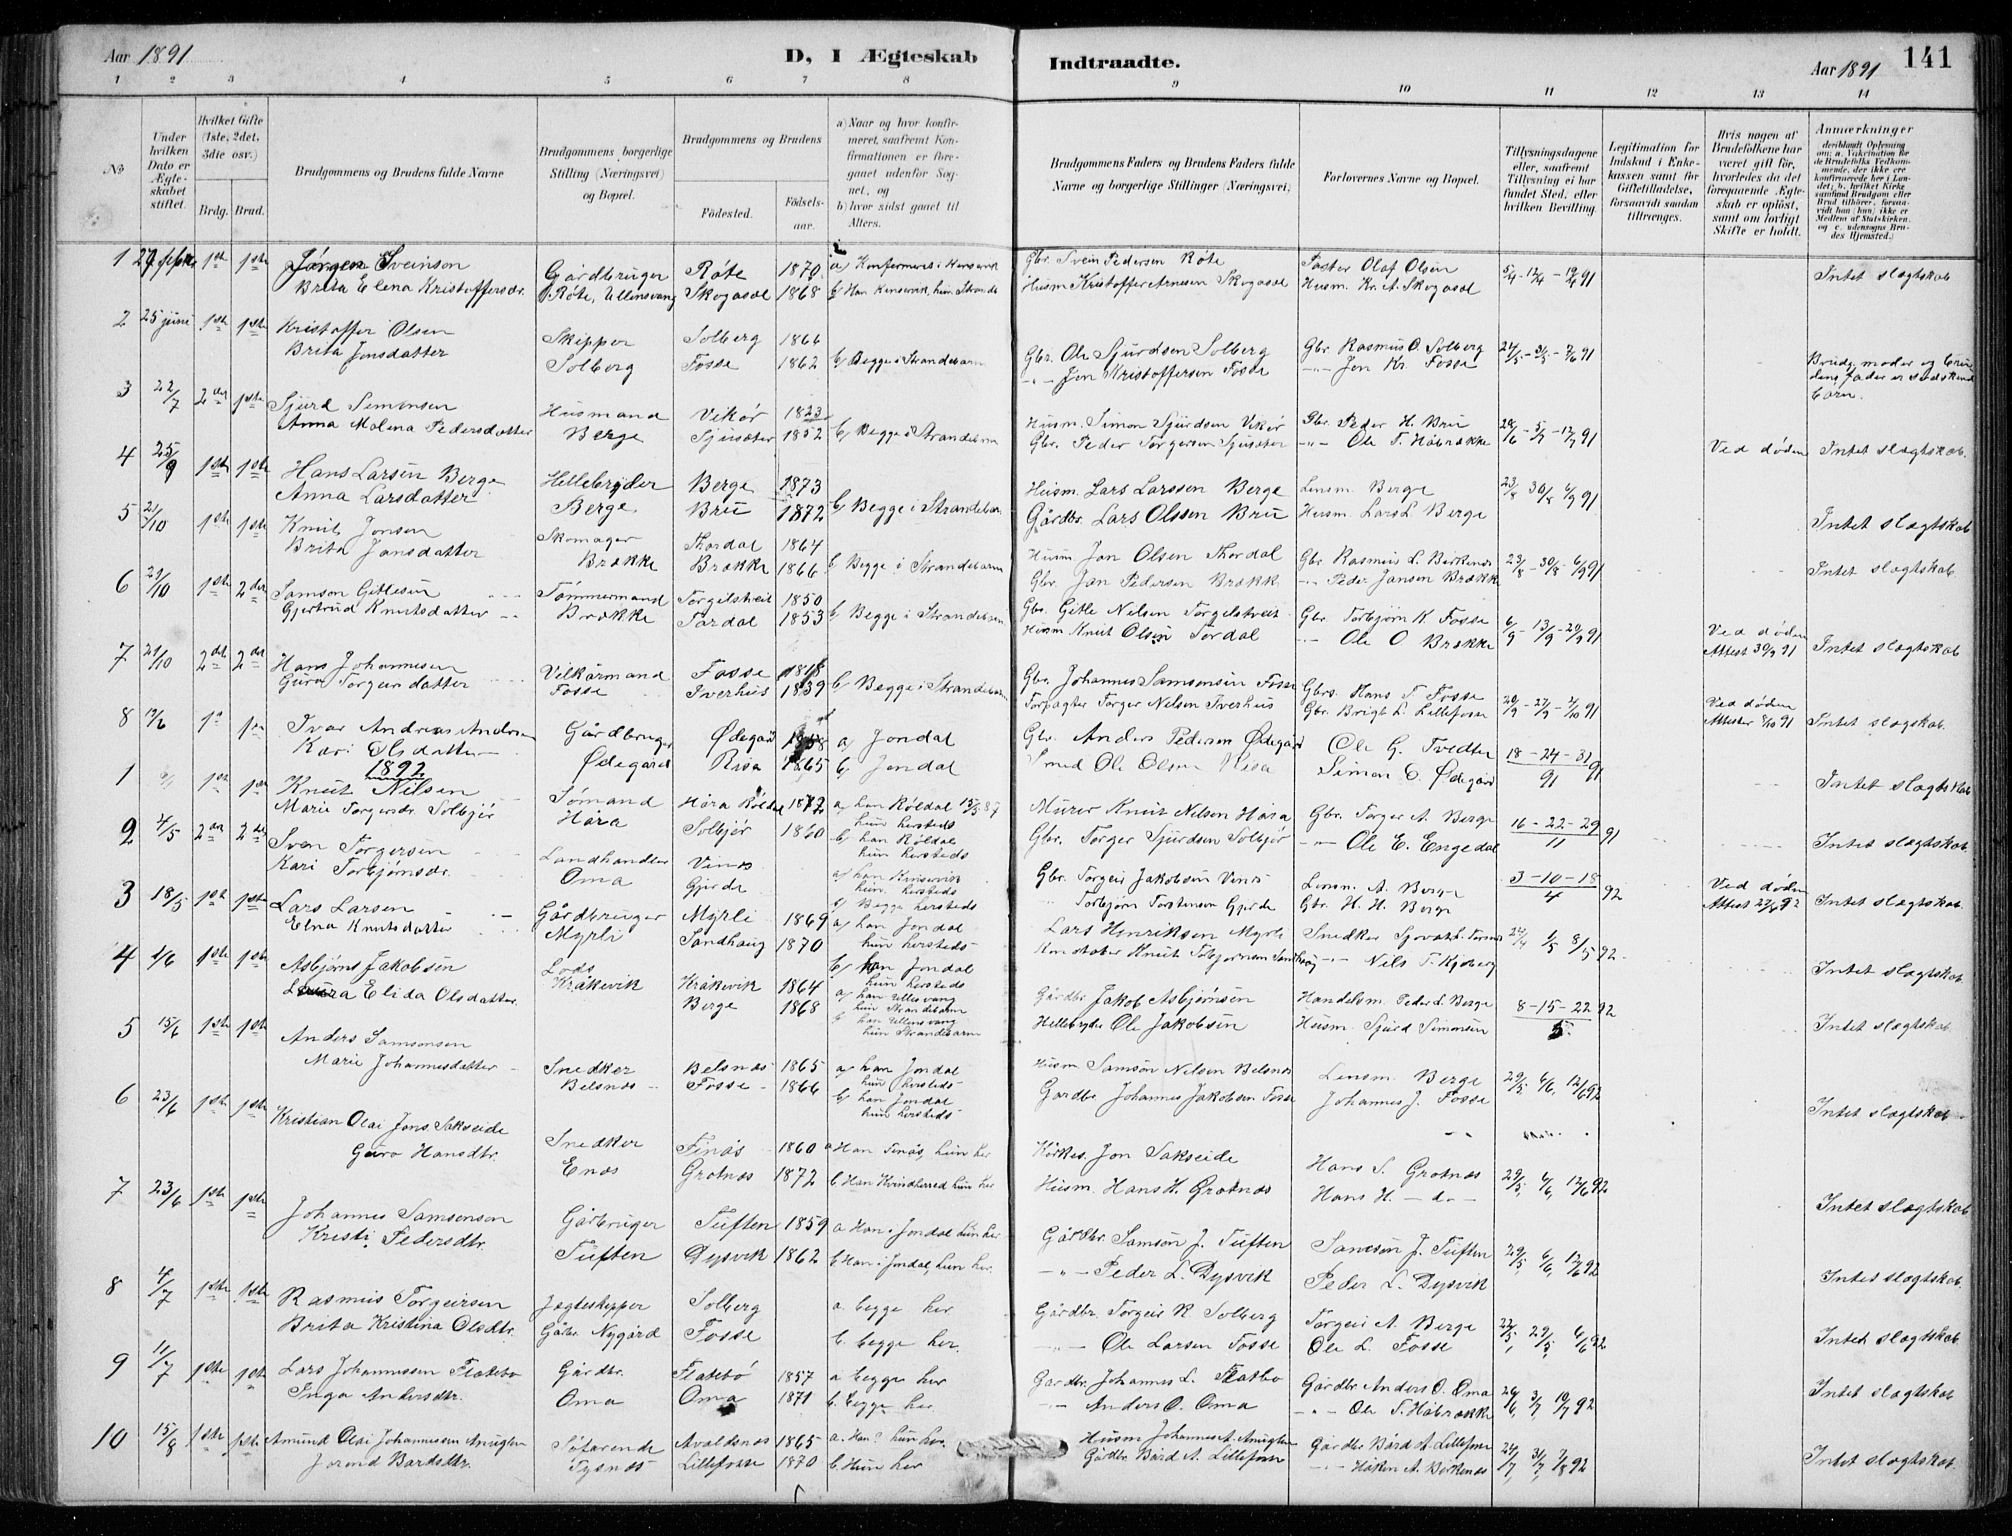 Aar 1891
D, I Ægteskab
Indtraadte.
Aar 1891
141
1 2 3 4 5 6 7 8 9 10 11 12 13 14
No
Under hvilken Dato er Ægteskabet stiftet.
Hvilket Gifte (1ste, 2det, 3die osv.)
Brdg. Brud.
Brudgommens og Brudens fulde Navne
Brudgommens borgerlige Stilling (Næringsvei) og Bopæl.
Brudgommens og Brudens
Födested.
Födsels-aar.
a) Naar og hvor konfirmeret, saafremt Konfirmationen er foregaaet udenfor Sognet, og
b) hvor sidst gaaet til Alters.
Brudgommens Faders og Brudens Faders fulde Navne og borgerlige Stillinger (Næringsvei)
Forlovernes Navne og Bopæl.
Tillysningsdagene eller, saafremt Tillysning ei har fundet Sted, efter hvilken Bevilling.
Legitimation for Indskud i Enkekassen samt for Giftetilladelse, forsaavidt saadan tiltrænges.
Hvis nogen af Brudefolkene har været gift før, hvorledes da det foregaaende Ægteskab er oplöst, samt om lovligt Skifte er holdt.
Anmærkninger
1 1ste 1ste Jørgen Sveinson Gardbruger Røte 1870 Gbr. Svein Pedersen Røte Olaf Olsen 5/4 - 12/4 - 19/4 91 Intet slægtskab
Brita Elena Kristoffersdr. Røte, Ullensvang Skogasel 1868 Husm Kristoffer Arnesen Skogasel Husm. Kr. A. Skogasel
2 25 juni 1ste 1ste Kristoffer Olsen Skipper Solberg Gbr. Ole Sjurdsen Solberg Gbr Rasmus O. Solberg
Brita Jonsdatter Solberg Fosse 1862 b) Begge i Strandebarn Jon Kristoffersen Fosse Jon Kr Fosse
3 22/7 2det 1ste Sjurd Simonsen Husmand Vikør 1823 Husm. Simon Sjurdsen Vikør Gbr. Peder H. Bru Ved døden Intet slægtskab.
Anna Malena Pedersdatter Berge Sjusæter 1852 b) Begge i Strandebarn Gbr. Peder Torgersen Sjusæter Ole T. Håbrække
4 25/9 1ste 1ste Hans Larsen Berge Hellebryder Berge 1873 Husm. Lars Larssen Berge Lensm. Berge 23/8 30/8 6/9 91 Intet slægtskab
Anna Larsdatter Berge Bru 1872 b) Begge i Strandebarn Gårdbr. Lars Olssen Bru Husm. Lars L Berge
5 21/10 1ste 1ste Knut Jonsen Skomager Thordal 1864 Husm Jon Olsen Thordal Gbr Rasmus L. Birkenes 23/8 - 30/8 - 6/9 91 Intet slægtskab
Brita Jansdatter Brække Brække 1866 b Begge i Strandebarn Gbr. Jan Pedersen Brække Peder Jansen Brække
6 21/10 1ste 2det Samson Gitlesen Tømmermand Torgilstveit 1850 Gbr. Gitle Nilsen Torgilstveit Gbr. Torbjørn K. Fosse 6/9 - 13/9 - 20/9 91 Ved døden Intet slægtskab
Gjertrud Knutsdatter Brække Tordal 1853 b) Begge i Strandebarn Husm Knut Olsen Tordal Ole O. Brække
7 21/10 2det 2det Hans Johannesen Vilkårmand Fosse 1818 Gbr. Johannes Samsonsen Fosse Gbr. Hans T. Fosse 20/9 - 27/9 - 4/10 91 Ved døden Intet slægtskab.
Guro Torgeirsdatter Fosse Tverhus 1839 b) Begge i Strandebarn Forpagter Torger Nilsen Tverhus Gbr. Brigt L. Lillefosse
8 Ivar Andreas Andersen Gårdbruger Ødegård 1858 a) Jondal Gbr. Anders Pedersen Ødegård Ole G. Tvedten 18 - 24 - 31 91 Intet slægtskab
Kari Olsdatter Ødegård Risa 1865 b) Jondal Smed Ole Olsen Risa Simon E. Ødegård
1892
1 1ste 1ste Knut Nilsen Sømand Håra Røldal 1872 a) han Røldal Murer Knut Nilsen Håra Gbr. Torger A. Berge 16 - 22 - 29 / 11 91 Intet slægtskab.
Marie Torgersdr. Solbjør Håra Solbjør 1860 hun hersteds Gbr. Torger Sjurdsen Solbjør Ole E. Engedal
b) han Røldal hun hersteds
2 4/5 2det 2det Sven Torgersen Landhandler Vines a) han Kinservik hun hersteds Gbr. Torgeir Jakobsen Vines Lensm. A. Berge 3 - 10 - 18 / 4 92 Ved døden Intet slægtskab.
Kari Torbjørnsdr. Oma Gjerde b) Begge hersteds Torbjørn Torstensen Gjerde Gbr. H. H. Berge
3 18/5 1ste 1ste Lars Larsen Gårdbruger Myrli 1869 a) han Jondal hun hersteds Lars Henriksen Myrli Snedker 1/5 8/5 92 Intet slægtskab.
Elna Knutsdatter Myrli Sandhaug 1870 b) han Jondal hun hersteds Nils T. Kjeberg
4 1/6 1ste 1ste Asbjørn Jakobsen Lods Kråkevik 1864 a) han Ullensvang hun Strandebarn Gårdbr Jakob Asbjørnsen Handelsm. Peder L. Berge 8 - 15 - 22 / 5 92 Intet slægtskab
Laura Elida Olsdatter Kråkevik Berge 1868 b han Ullensvang hun Strandebarn Hellebryder Ole Jakobsen Husm. Sjurd Simonsen
5 15/6 1ste 1ste Anders Samsonsen Snedker Belsnæs 1865 a) han Jondal hun hersteds Husm Samson Nilsen Belsnæs Lensm. Berge 29/5 6/6, 12/6 92 Intet slægtskab
Marie Johannesdatter Belsnæs Fosse 1866 b) han Jondal hun hersteds Gardbr Johannes Jakobsen Fosse Johannes J. Fosse
6 23/6 1ste 1ste Kristian Olai Jons. Sakseide Snedker Finås 1860 a Han Finås, hun her Jon Sakseide Hans S. Grotnæs 29/5, 6/6, 12/6 92 Intet slægtskab.
Guro Hansdtr. Enæs Grotnæs 1872 b Han Kvindherred hun her Husm. Hans H. Grotnæs Hans H. - d. -
7 23/6 1ste 1ste Johannes Samsonson Gårbruger Tuften 1859 a Han i Jondal hun her Gårdbr. Samson J. Tuften Samson J. Tuften 29/5, 6/6, 12/6 92 Intet slægtskab.
Kristi Pedersdtr. Tuften Dysvik 1862 b Han i Jondal, hun her. Peder L. Dysvik Peder L. Dysvik
8 4/7 1ste 1ste Rasmus Torgeirsen Jægteskipper Solberg a. begge her Gårdbr Torgeir R Solberg Torgeir A. Berge 22/5, 29/5, 6/6 92 Intet slægtskab.
Brita Kristina Olsdtr. Gårbr. Nygård Fosse b. begge her. Ole Larsen Fosse Ole L. Fosse
9 11/7 1ste 1ste Lars Johannessen Flatebø Gårdbr. Flatebø 1857 a begge her Gardbr. Johannes L. Flatbø Gårdbr Anders O. Oma 26/6, 3/7 10/7 92 Intet slægtskab
Inga Andersdtr. Oma Oma 1871 b. begge her. Anders O. Oma Ole T. Håbrække
10 15/8 1ste 1ste Amund Olai Johannessen Anuglen Søfarende Avaldsnæs 1865 a. Han? hun her. Husm Johannes A. Anuglen Gårdbr Bård A. Lillefosse 24/7, 31/7 7/8 92 Intet slægtskab.
Jorend Bårdsdtr. Tysnæs Lillefosse 1870 b. Hun her Gårdbr. Bård A. Lillefosse Håken A. Birkenæs